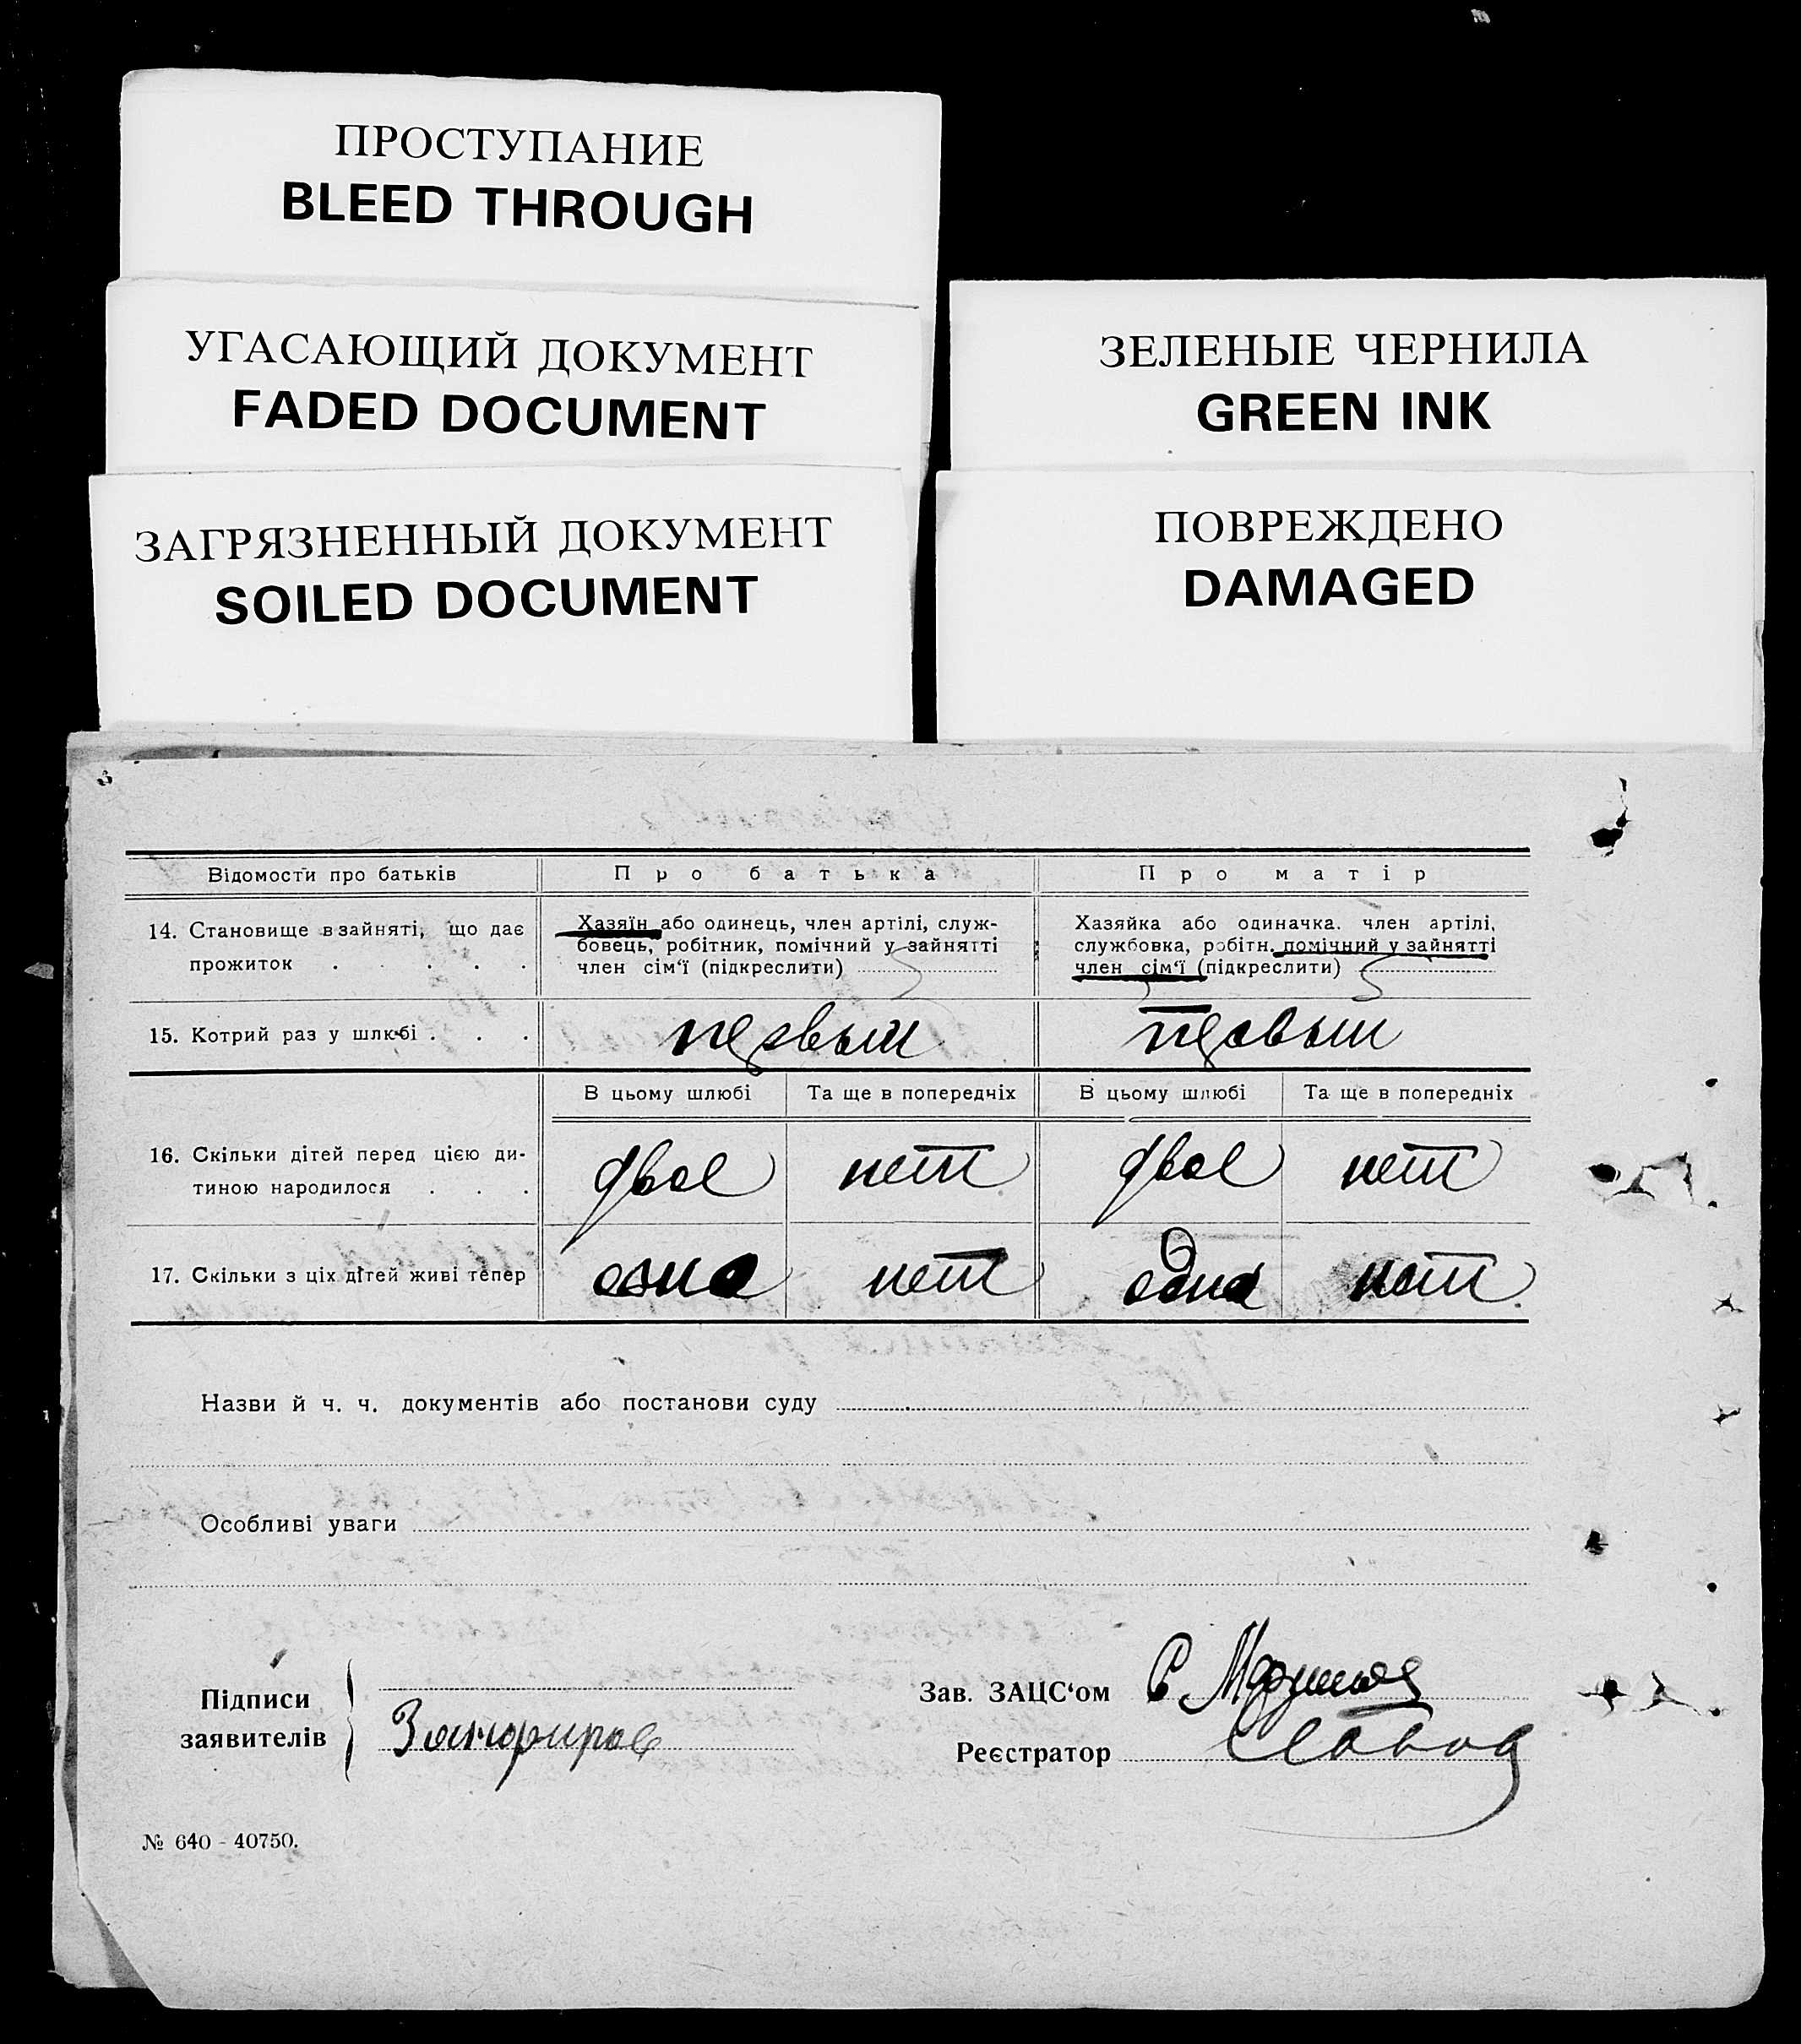 ПРОСТУПАНИЕ
BLEED THROUGH
УГАСАЮЩИЙ ДОКУМЕНТ
FADED DOCUMENT
ЗЕЛЕНЫЕ ЧЕРНИЛА
GREEN INK
ЗАГРЯЗНЕННЫЙ ДОКУМЕНТ
SOILED DOCUMENT
ПОВРЕЖДЕНО
DAMAGED
Відомости про батьків
Про батька
Про матір
14. Становище в зайняті, що дає
прожиток . . . . .
Хазяїн або одинець, член артілі, служ-
бовець, робітник, помічний у зайнятті
член сім‘ї (підкреслити)
Хазяйка або одиначка. член артілі,
службовка, робітн. помічний у зайнятті
член сім‘ї (підкреслити)
15. Котрий раз у шлюбі . . .
первый
первый
В цьому шлюбі
Та ще в попередніх
В цьому шлюбі
Та ще в попередніх
16. Скільки дітей перед цією ди-
тиною народилося . . .
двое
нет
двое
нет
17. Скільки з ціх дітей живі тепер
одно
нет
одна
нет
Назви й ч. ч. документів або постанови суду
Особливі уваги
Підписи
заявителів
Зав. ЗАЦС‘ом
Реєстратор
№ 640 - 40750.